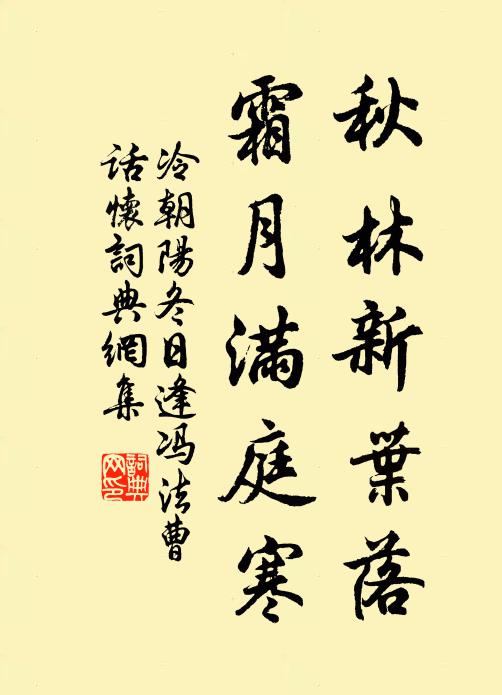 秋林新葉落
霜月滿庭寒
冷朝陽冬日逢冯法曹
话懷詞典網集
詞典网印